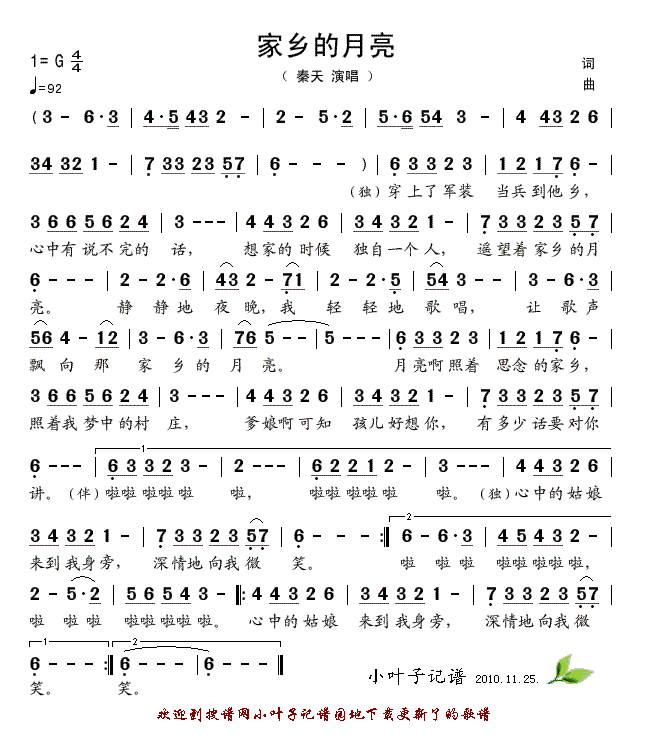 家乡的月亮
1= G 4/4
( 秦天 演唱 )
词
♩=92
曲
( 3 - 6·3 | 4·5 43 2 - | 2 - 5·2 | 5·6 54 3 - | 4 43 2 6 |
34 32 1 - | 7 33 23 57 | 6 - - - ) | 6 3 3 2 3 | 1 2 1 7 6 - |
(独) 穿上了军装 当兵到他乡，
3 6 6 5 6 2 4 | 3 - - - | 4 4 3 2 6 | 3 4 3 2 1 - | 7 3 3 2 3 5 7 |
心中有说不完的 话， 想家的时候 独自一个人， 遥望着家乡的月
6 - - - | 2 - 2·6 | 43 2 - 71 | 2 - 2·5 | 54 3 - - | 3 - 6·3 |
亮。 静 静地 夜 晚，我 轻 轻地 歌 唱， 让 歌声
56 4 - 12 | 3 - 6·3 | 76 5 - - | 5 - - - | 6 3 3 2 3 | 1 2 1 7 6 - |
飘 向 那 家 乡的 月 亮。 月亮啊照着 思念的家乡，
3 6 6 5 6 2 4 | 3 - - - | 4 4 3 2 6 | 3 4 3 2 1 - | 7 3 3 2 3 5 7 |
照着我梦中的村 庄， 爹娘啊可知 孩儿好想你， 有多少话要对你
1
6 - - - | 6 3 3 2 3 | 2 - - - | 6 2 2 1 2 | 3 - - - | 4 4 3 2 6 |
讲。(伴) 啦啦 啦啦啦 啦， 啦啦 啦啦啦 啦。(独) 心中的姑娘
2
3 4 3 2 1 - | 7 3 3 2 3 5 7 | 6 - - - :| 6 - 6·3 | 4 5 4 3 2 - |
来到我身旁， 深情地向我微 笑。 啦 啦 啦 啦啦啦啦啦，
2 - 5·2 | 5 6 5 4 3 - |: 4 4 3 2 6 | 3 4 3 2 1 - | 7 3 3 2 3 5 7 |
啦 啦啦 啦啦啦啦 啦。 心中的姑娘 来到我身旁， 深情地向我微
1 2
6 - - - :| 6 - - 6 - - - |
笑。 笑。
小叶子记谱 2010.11.25.
欢迎到搜谱网小叶子记谱园地下载更新了的歌谱